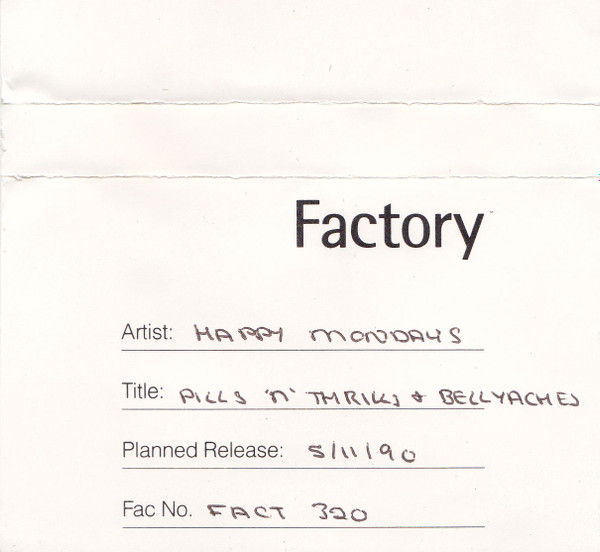 Factory
Artist: HAPPY MONDAYS
Title: PILLS 'N' THRILLS + BELLYACHES
Planned Release: 5/11/90
Fac No. FACT 320